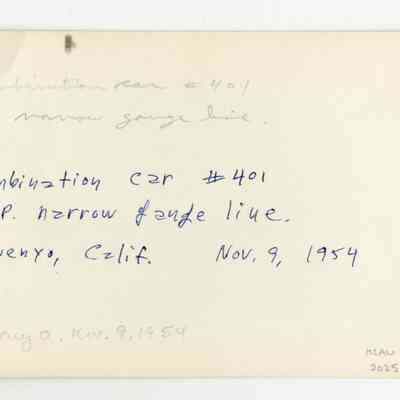 mbination car #401
narrow gauge line.
mbination car #401
P. narrow gauge line.
wenyo, Calif. Nov. 9, 1954
Nov. 9, 1954
2025